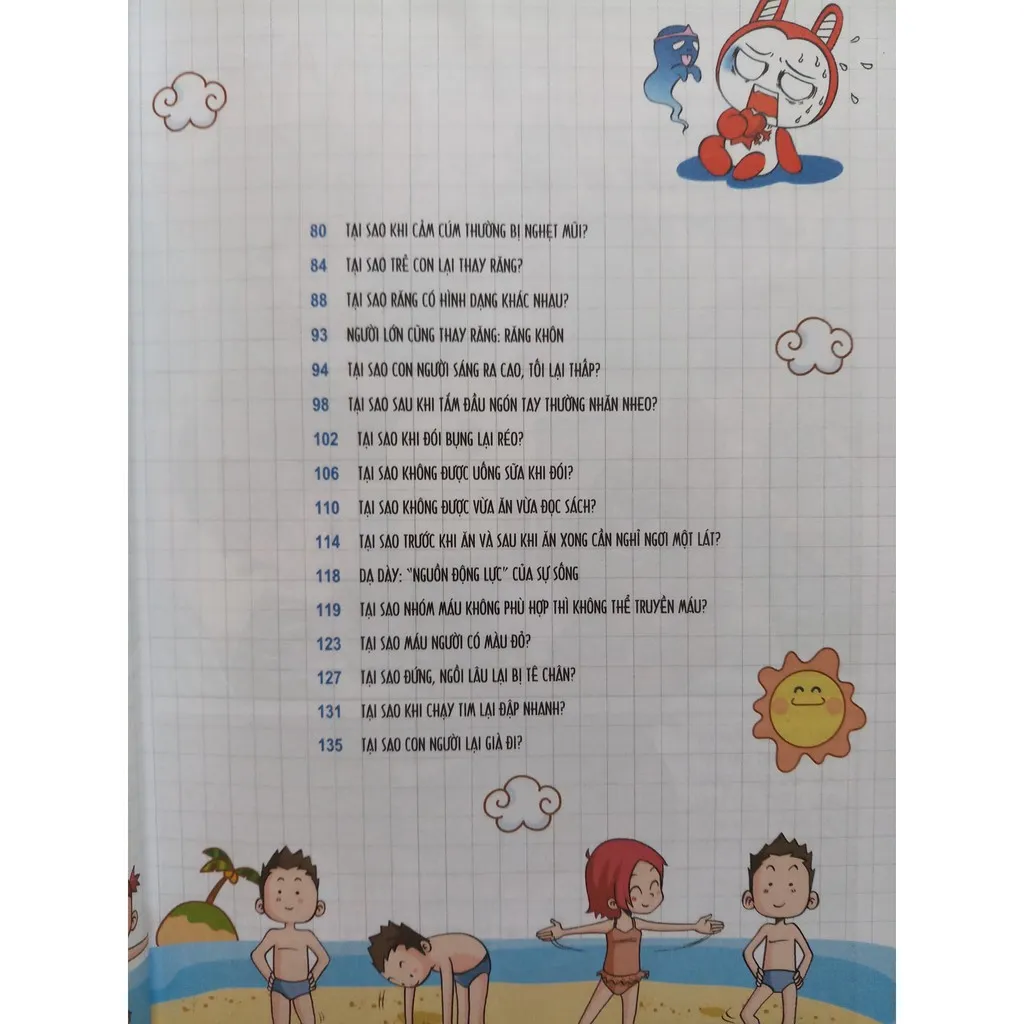 80 TẠI SAO KHI CẢM CÚM THƯỜNG BỊ NGHẸT MŨI?
84 TẠI SAO TRẺ CON LẠI THAY RĂNG?
88 TẠI SAO RĂNG CÓ HÌNH DẠNG KHÁC NHAU?
93 NGƯỜI LỚN CŨNG THAY RĂNG: RĂNG KHÔN
94 TẠI SAO CON NGƯỜI SÁNG RA CAO, TỐI LẠI THẤP?
98 TẠI SAO SAU KHI TẮM ĐẦU NGÓN TAY THƯỜNG NHĂN NHEO?
102 TẠI SAO KHI ĐÓI BỤNG LẠI RÉO?
106 TẠI SAO KHÔNG ĐƯỢC UỐNG SỮA KHI ĐÓI?
110 TẠI SAO KHÔNG ĐƯỢC VỪA ĂN VỪA ĐỌC SÁCH?
114 TẠI SAO TRƯỚC KHI ĂN VÀ SAU KHI ĂN XONG CẦN NGHỈ NGƠI MỘT LÁT?
118 DẠ DÀY: "NGUỒN ĐỘNG LỰC" CỦA SỰ SỐNG
119 TẠI SAO NHÓM MÁU KHÔNG PHÙ HỢP THÌ KHÔNG THỂ TRUYỀN MÁU?
123 TẠI SAO MÁU NGƯỜI CÓ MÀU ĐỎ?
127 TẠI SAO ĐỨNG, NGỒI LÂU LẠI BỊ TÊ CHÂN?
131 TẠI SAO KHI CHẠY TIM LẠI ĐẬP NHANH?
135 TẠI SAO CON NGƯỜI LẠI GIÀ ĐI?